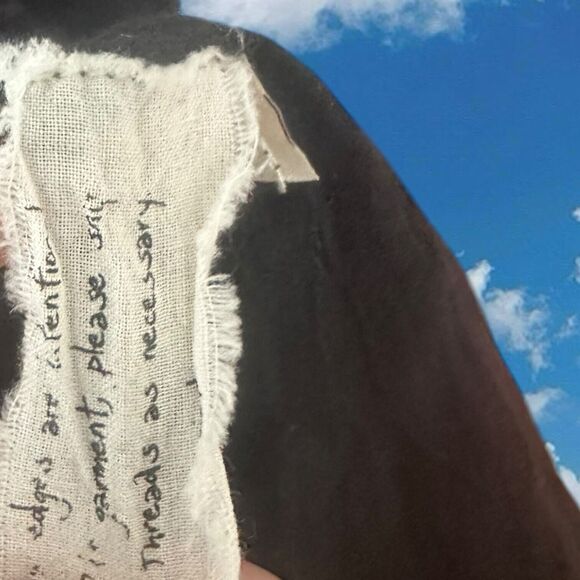 edges are intentional
garment, please snip
Threads as necessary.